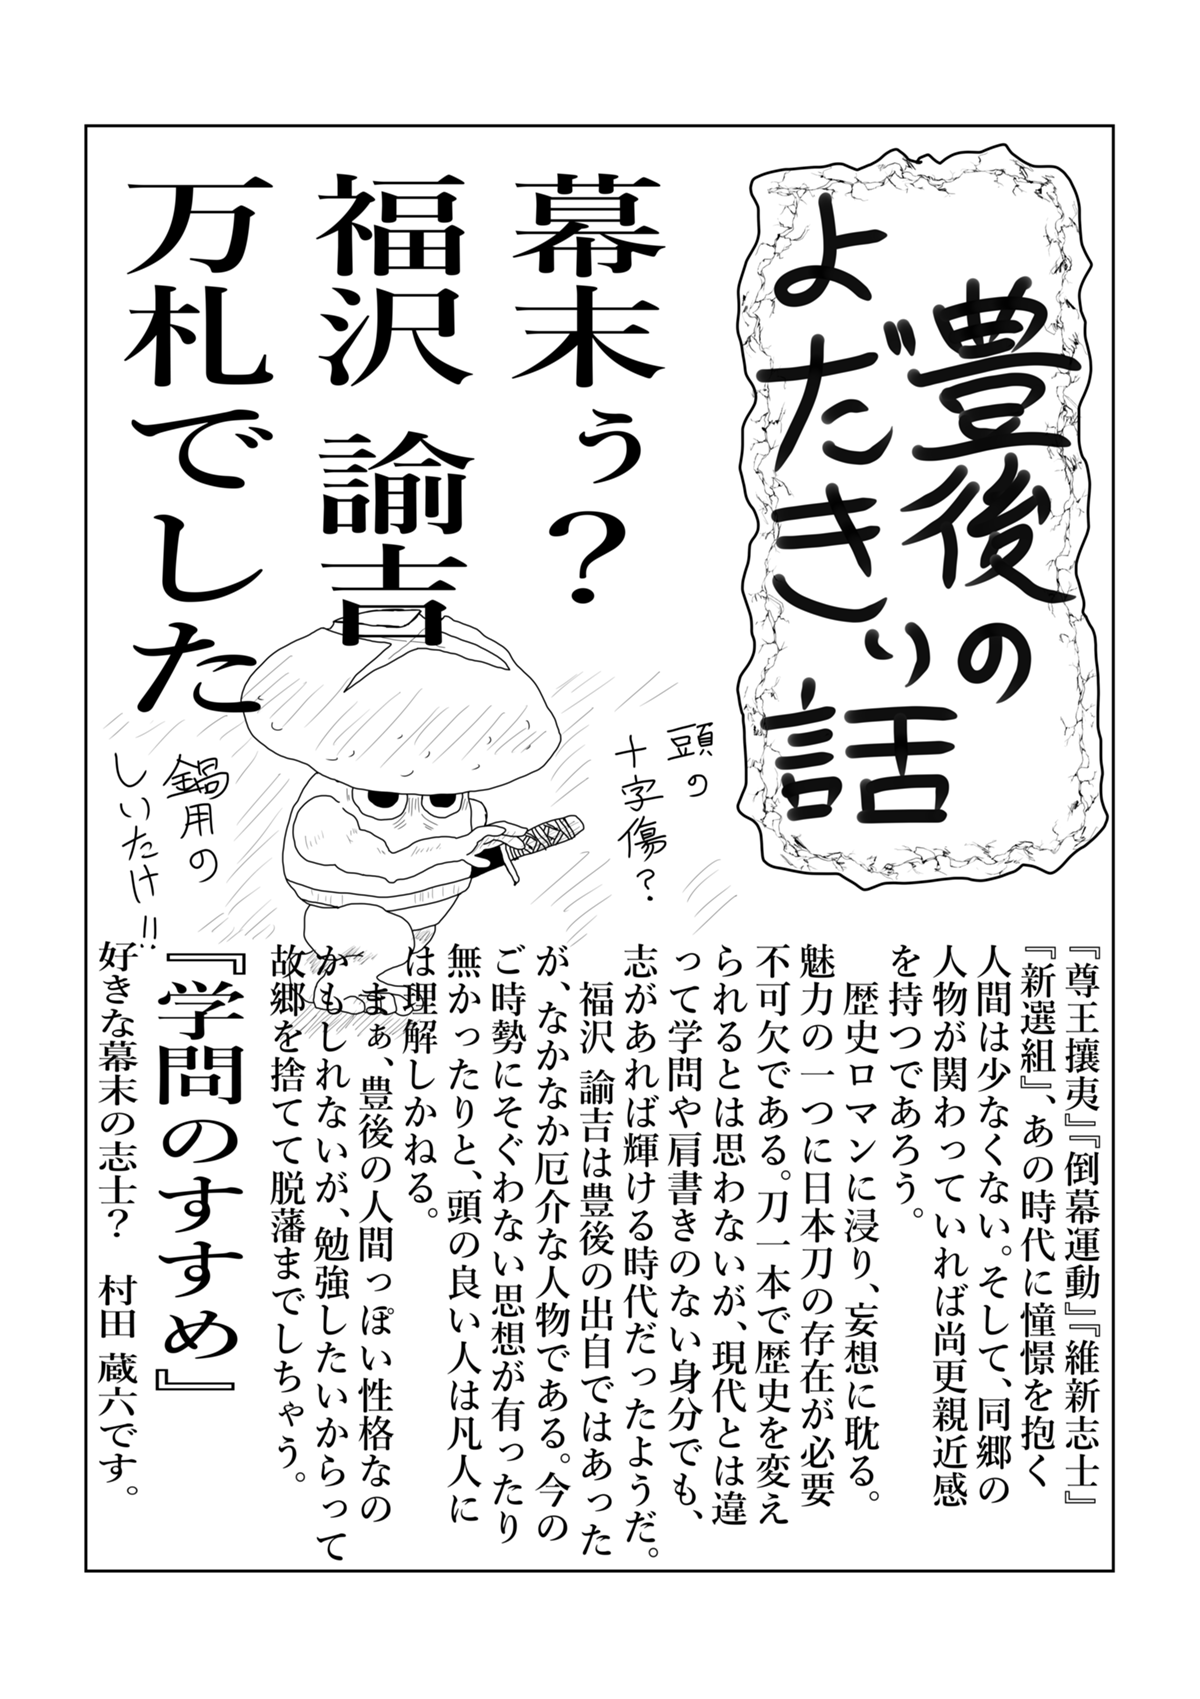 豊後の
よだきぃ話
幕末ぅ？
福沢 諭吉
万札でした
頭の
十字傷？
鍋用の
しいたけ!!
『尊王攘夷』『倒幕運動』『維新志士』
『新選組』、あの時代に憧憬を抱く
人間は少なくない。そして、同郷の
人物が関わっていれば尚更親近感
を持つであろう。
歴史ロマンに浸り、妄想に耽る。
魅力の一つに日本刀の存在が必要
不可欠である。刀一本で歴史を変え
られるとは思わないが、現代とは違
って学問や肩書きのない身分でも、
志があれば輝ける時代だったようだ。
福沢 諭吉は豊後の出自ではあった
が、なかなか厄介な人物である。今の
ご時勢にそぐわない思想が有ったり
無かったりと、頭の良い人は凡人に
は理解しかねる。
まぁ、豊後の人間っぽい性格なの
かもしれないが、勉強したいからって
故郷を捨てて脱藩までしちゃう。
『学問のすすめ』
好きな幕末の志士？ 村田 蔵六です。